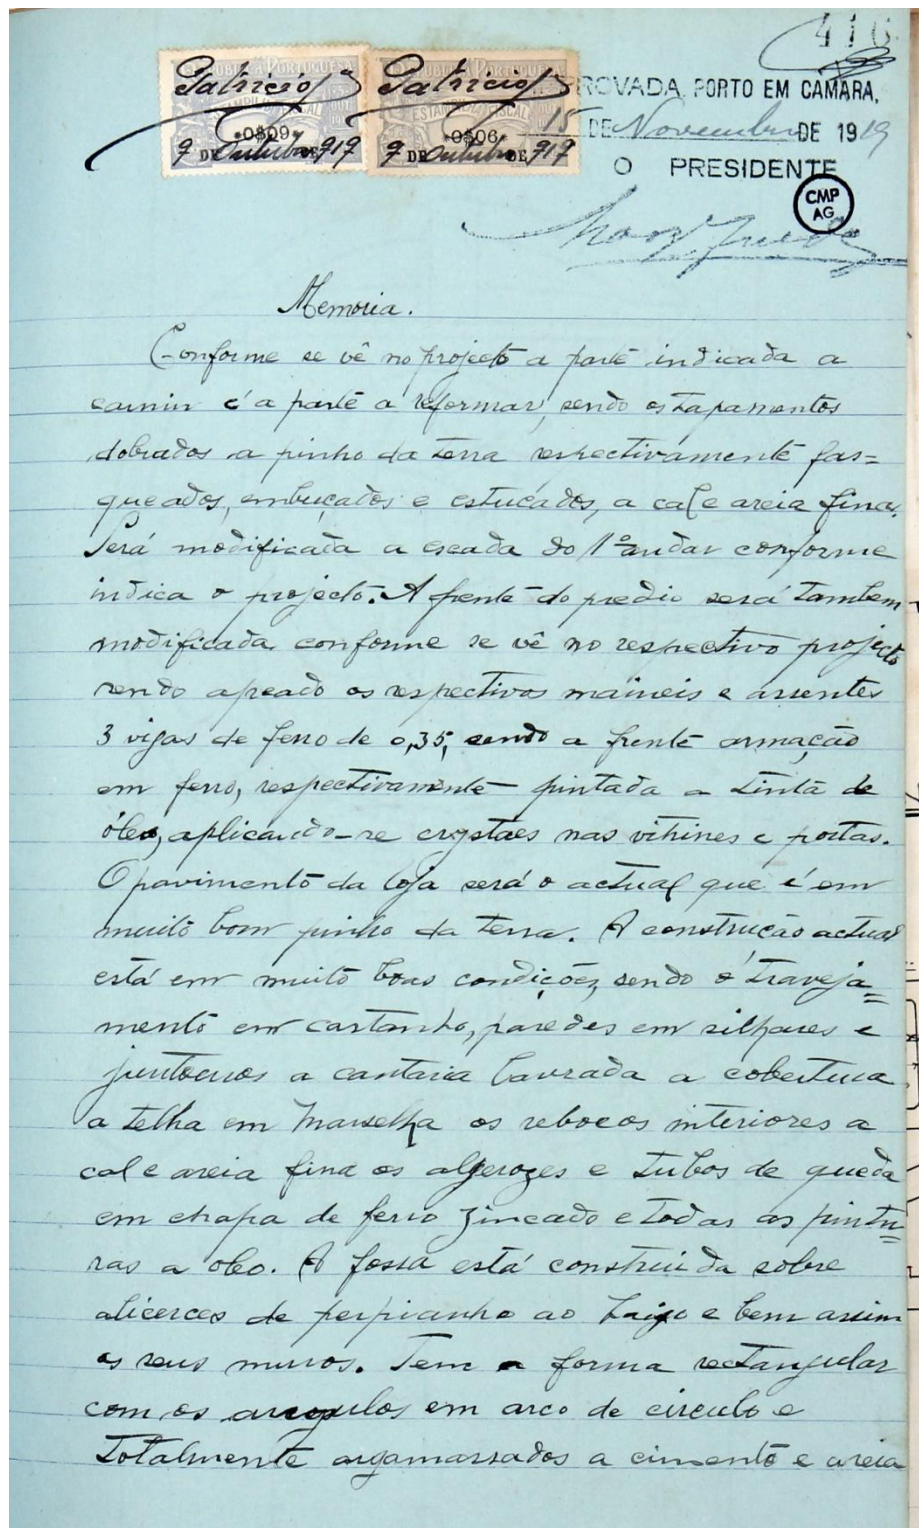 416
REPUBLICA PORTUGUESA REPUBLICA PORTUGUESA
Patricio Patricio
ESTAMPILHA FISCAL ESTAMPILHA FISCAL
0$09 0$06
9 DE Outubro DE 919 9 DE Outubro DE 919
APROVADA, PORTO EM CAMARA,
15 DE Novembro DE 1919
O PRESIDENTE
CMP
AG
Memoria.
Conforme se vê no projecto a parte indicada a
carmin é a parte a reformar, sendo os tapamentos
dobrados a pinho da terra respectivamente fas=
queados, embuçados e estucados, a cal e areia fina.
Será modificada a escada do 1º andar conforme
indica o projecto. A frente do predio será tambem
modificada conforme se vê no respectivo projecto
sendo apeado os respectivos maineis e assentes
3 vigas de ferro de 0,35, sendo a frente armação
em ferro, respectivamente pintada a tinta de
óleo, aplicando-se crystaes nas vitrines e portas.
O pavimento da loja será o actual que é em
muito bom pinho da terra. A construção actual
está em muito boas condições, sendo o traveja=
mento em castanho, paredes em silhares e
juntouros a cantaria lavrada a cobertura
a telha em Marselha os rebocos interiores a
cal e areia fina os algerozes e tubos de queda
em chapa de ferro zincado e todas as pintu=
ras a oleo. A fossa está construida sobre
alicerces de perpianho ao baixo e bem assim
os seus muros. Tem a forma rectangular
com os angulos em arco de circulo e
totalmente argamassados a cimento e areia